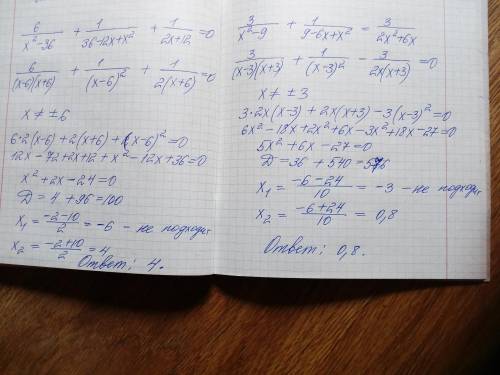 6/(x²-36) + 1/(36-12x+x²) + 1/(2x+12) = 0
6/((x-6)(x+6)) + 1/(x-6)² + 1/(2(x+6)) = 0
x ≠ ±6
6·2(x-6)+2(x+6)+(x-6)²=0
12x-72+2x+12+x²-12x+36=0
x²+2x-24=0
D = 4 + 96 = 100
x₁ = (-2-10)/2 = -6 - не подходит
x₂ = (-2+10)/2 = 4
Ответ: 4.
3/(x²-9) + 1/(9-6x+x²) = 3/(2x²+6x)
3/((x-3)(x+3)) + 1/(x-3)² - 3/(2x(x+3)) = 0
x ≠ ±3
3·2x(x-3)+2x(x+3)-3(x-3)²=0
6x²-18x+2x²+6x-3x²+18x-27=0
5x²+6x-27=0
D = 36 + 540 = 576
x₁ = (-6-24)/10 = -3 - не подходит
x₂ = (-6+24)/10 = 0,8
Ответ: 0,8.